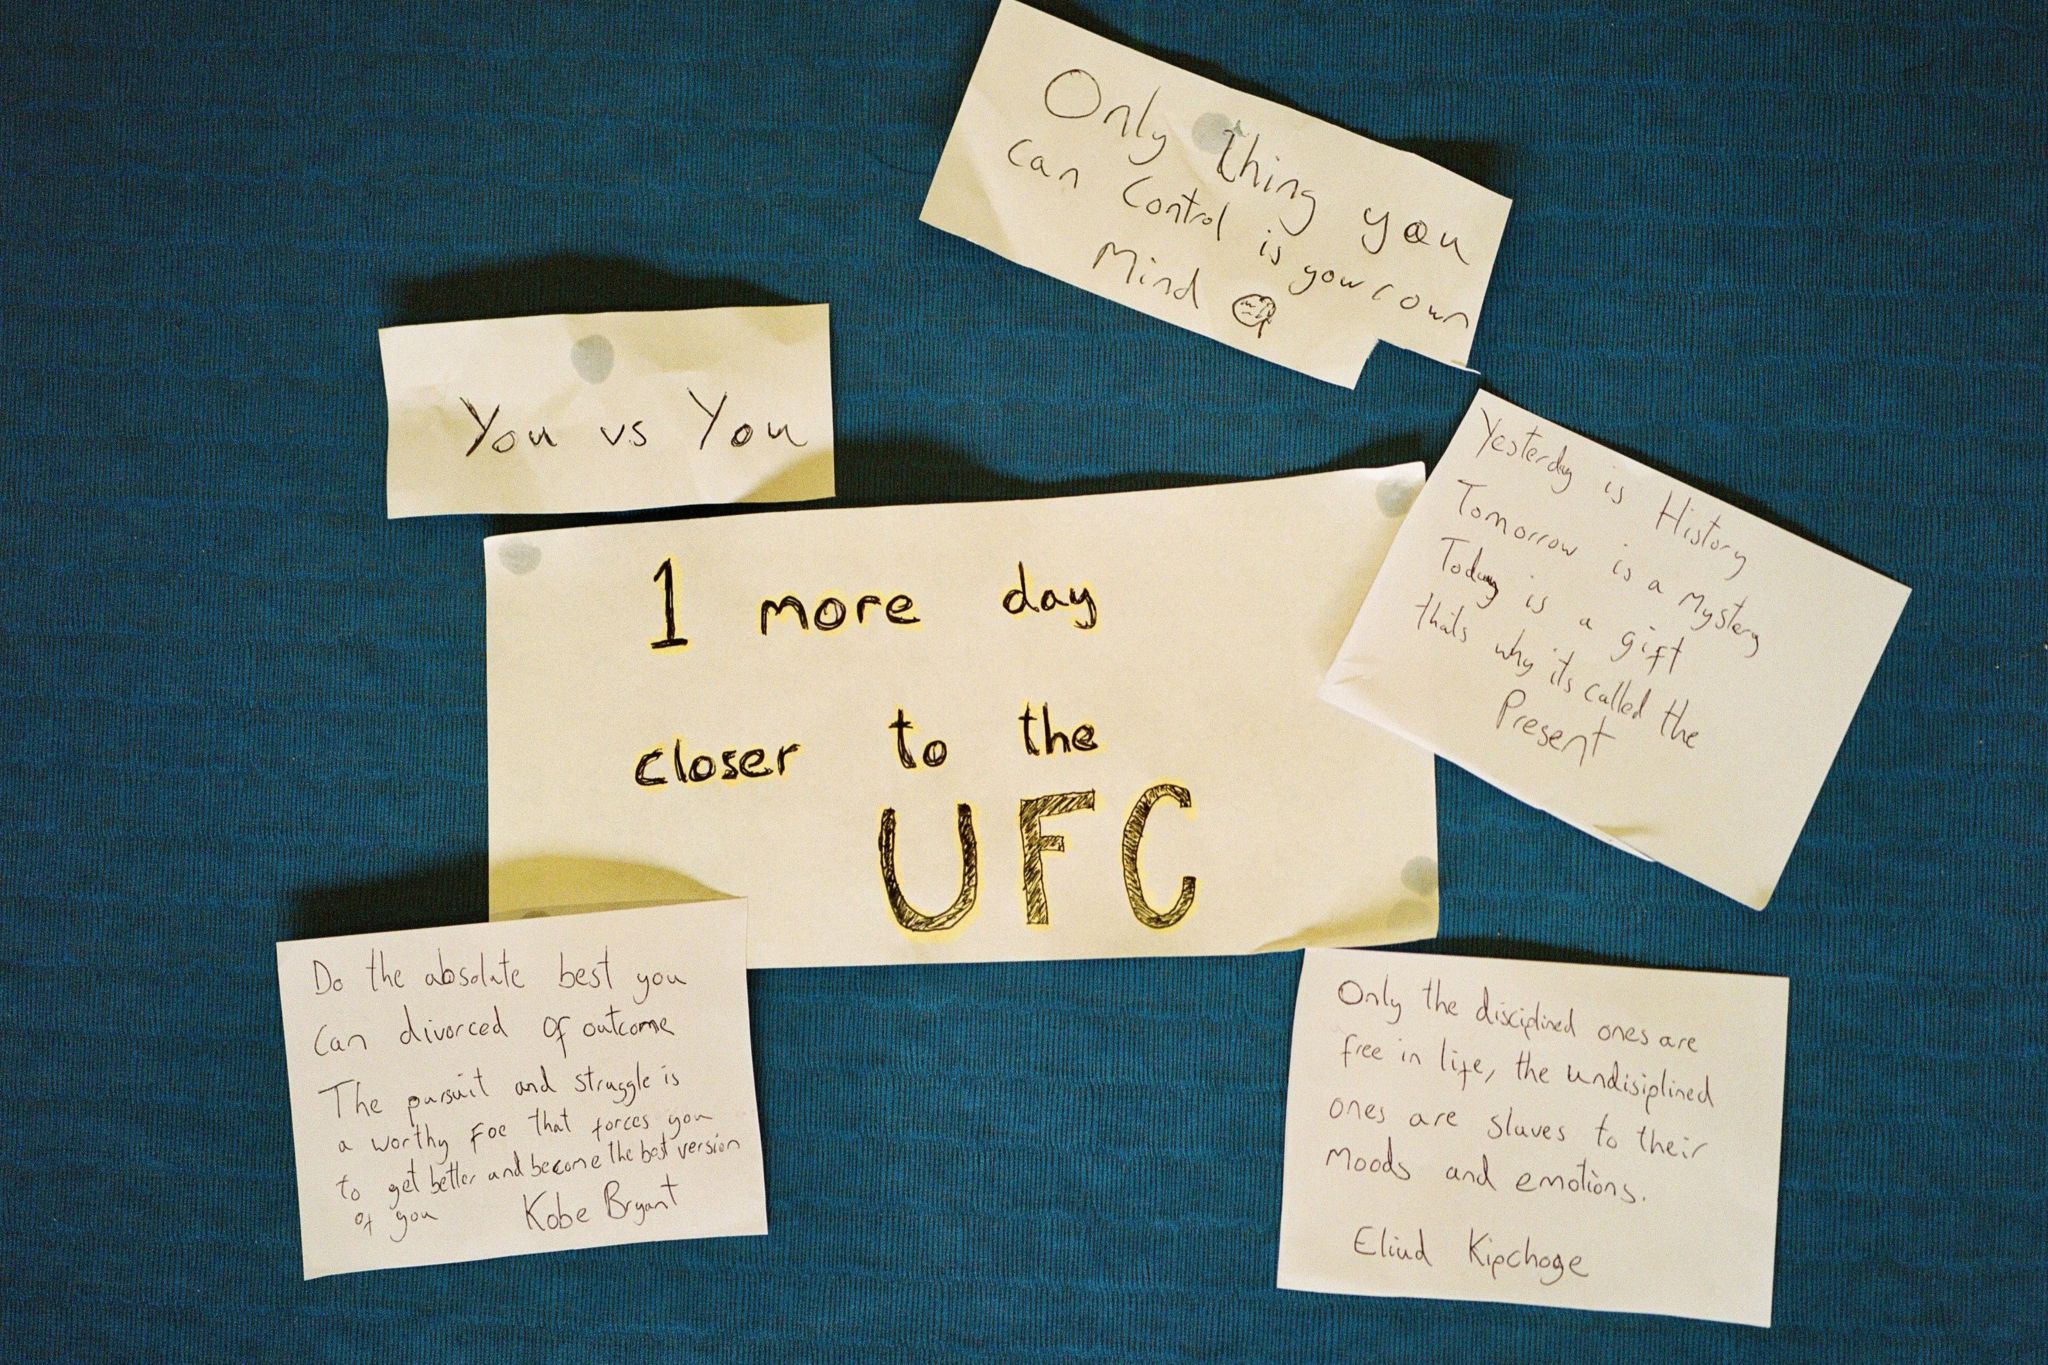 Only thing you
can control is your own
Mind
You vs You
Yesterday is History
Tomorrow is a mystery
Today is a gift
thats why its called the
Present
1 more day
closer to the
UFC
Do the absolute best you
can divorced of outcome
The pursuit and struggle is
a worthy foe that forces you
to get better and become the best version
of you Kobe Bryant
Only the disciplined ones are
free in life, the undisiplined
ones are slaves to their
moods and emotions.
Eliud Kipchoge